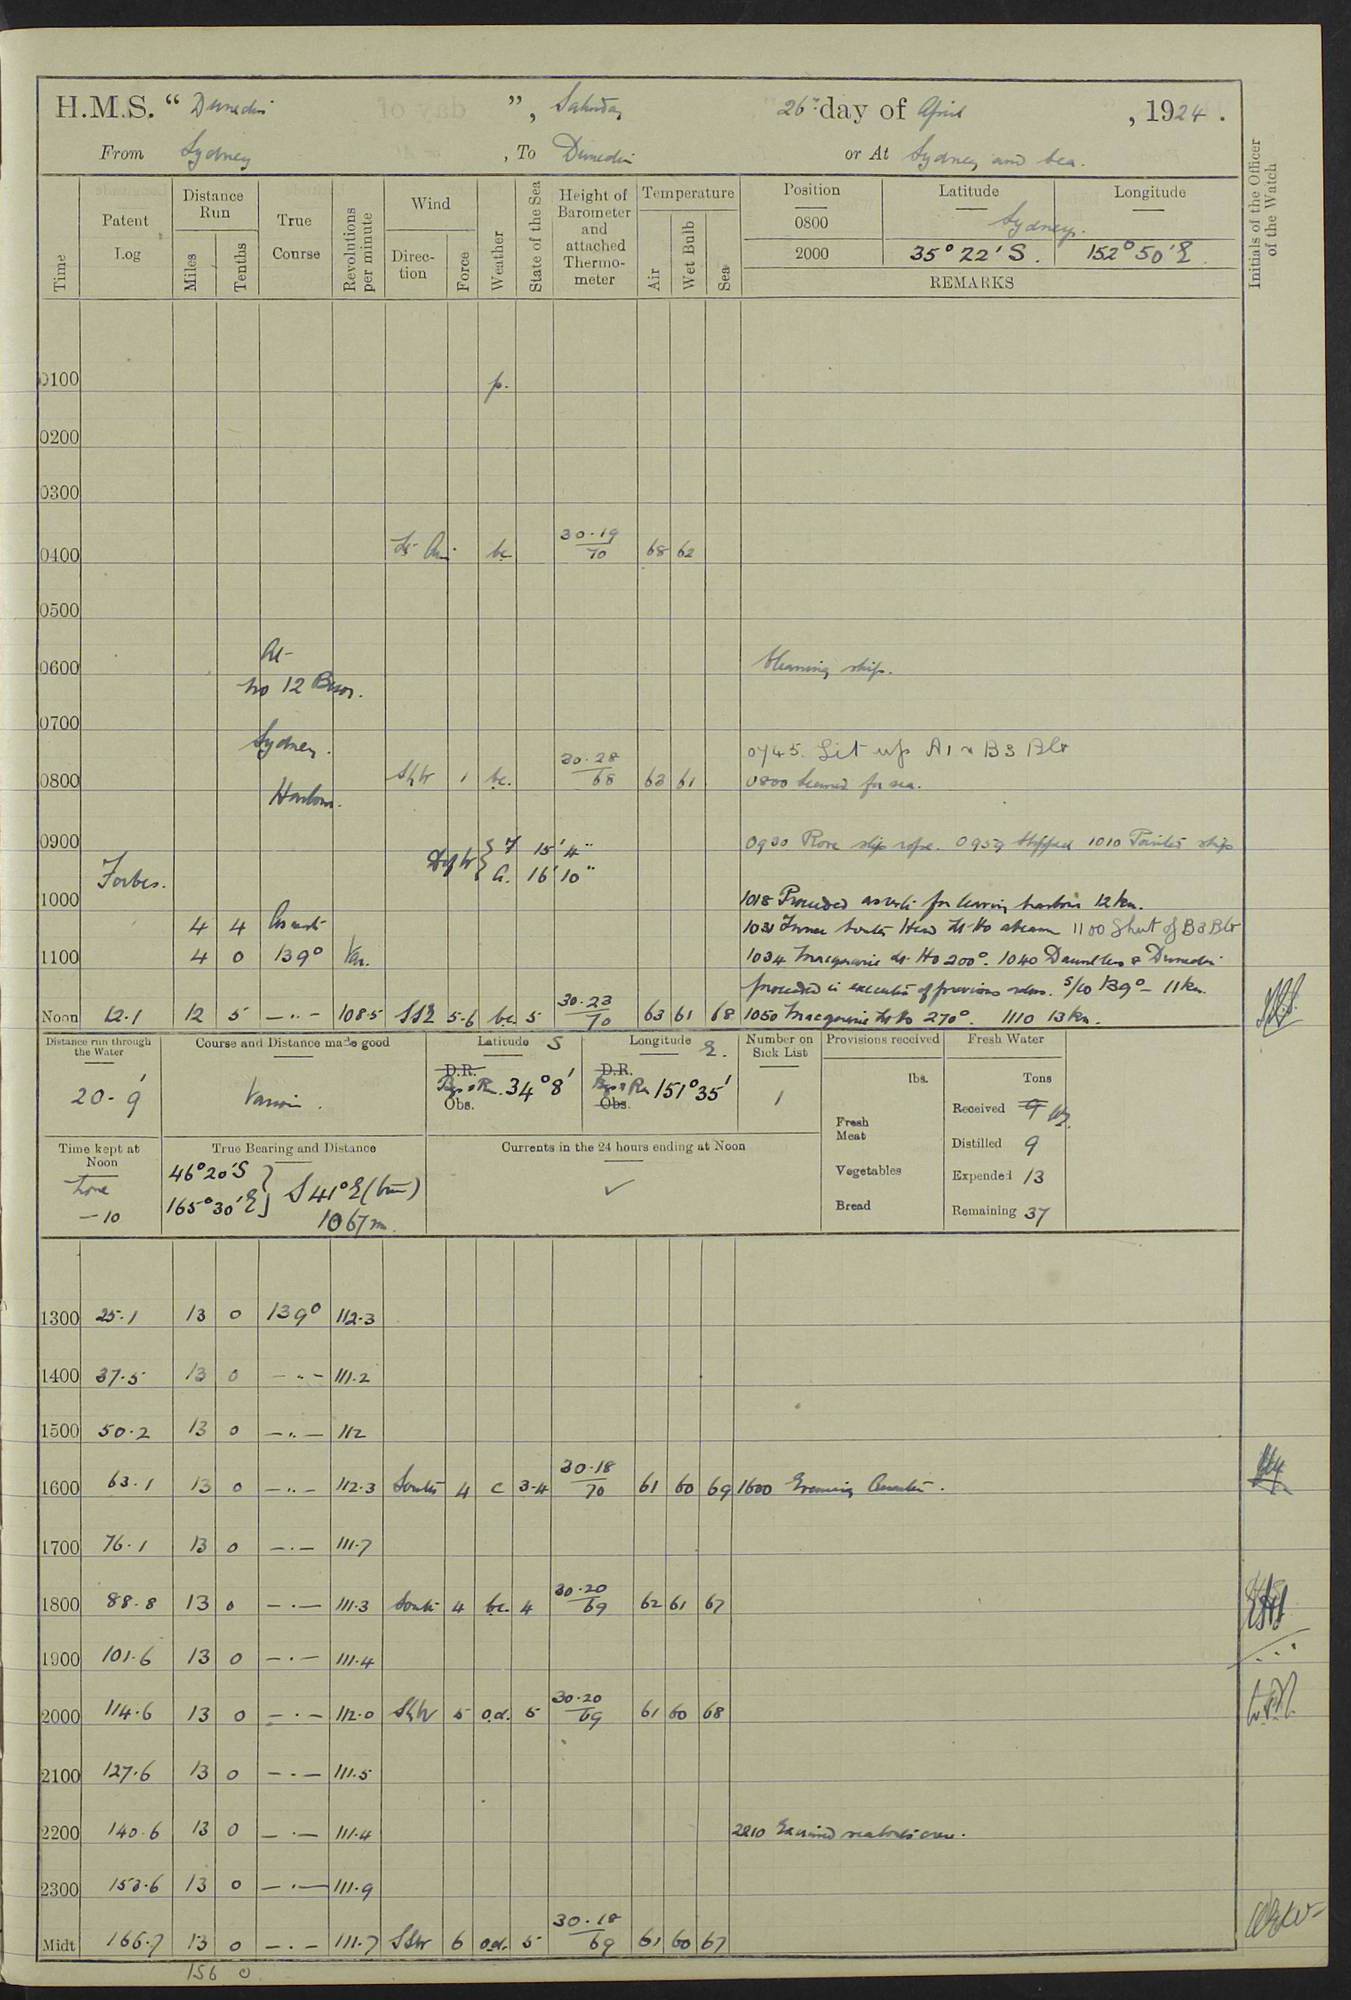 H.M.S. “ Dunedin ”, Saturday 26th day of April , 1924 .
From Sydney , To Dunedin or At Sydney and Sea.
Time
Patent Log
Distance Run
Miles
Tenths
True Course
Revolutions per minute
Wind
Direc-tion
Force
Weather
State of the Sea
Height of Barometer and attached Thermo-meter
Temperature
Air
Wet Bulb
Sea
Position Latitude Longitude
0800 Sydney.
2000 35° 22' S. 152° 50' E.
REMARKS
Initials of the Officer of the Watch
0100 p.
0200
0300
0400 Lt Air bc 30.19/70 68 62
0500
At
0600 Cleaning ship.
No 12 Buoy.
0700
Sydney. 0745. Lit up A1 & B3 Blr
0800 SbyW 1 bc. 30.28/68 63 61 0800 Secured for sea.
Harbour.
0900 F 15' 4" 0930 Rove slip rope. 0959 Slipped 1010 Pointed ship
Forbes. A. 16' 10"
1000 1018 Proceeded as reqte for leaving harbour 12 kn.
4 4 As reqte 1031 Inner South Head Lt Ho abeam 1100 Shut off B3 Blr
1100 4 0 139° Var. 1034 Macquarie Lt Ho 200°. 1040 Dauntless & Dunedin
proceeded in execution of previous orders. S/Co 139° - 11 kn.
Noon 12.1 12 5 — ·· — 108.5 SSE 5-6 bc 5 30.23/70 63 61 68 1050 Macquarie Lt Ho 270°. 1110 13 kn.
Distance run through the Water
20.9'
Course and Distance made good
Various.
Latitude S
D.R.
34° 8'
Obs.
Longitude E.
D.R.
151° 35'
Obs.
Number on Sick List
1
Provisions received
lbs.
Fresh Meat
Vegetables
Bread
Fresh Water
Tons
Received 9
Distilled 9
Expended 13
Remaining 37
Time kept at Noon
Zone
—10
True Bearing and Distance
46° 20' S
165° 30' E
S 41° E (true)
1067 m.
Currents in the 24 hours ending at Noon
✓
1300 25.1 13 0 139° 112.3
1400 37.5 13 0 — ·· — 111.2
1500 50.2 13 0 — ·· — 112
1600 63.1 13 0 — ·· — 112.3 South 4 c 3-4 30.18/70 61 60 69 1600 Evening Quarters.
1700 76.1 13 0 — · — 111.7
1800 88.8 13 0 — · — 111.3 South 4 bc. 4 30.20/69 62 61 67
1900 101.6 13 0 — · — 111.4
2000 114.6 13 0 — · — 112.0 SbyW 5 o.d. 5 30.20/69 61 60 68
2100 127.6 13 0 — · — 111.5
2200 140.6 13 0 — · — 111.4 2210 Exercised seaboats crew.
2300 153.6 13 0 — · — 111.9
Midt 166.7 13 0 — · — 111.7 SSW 6 o.d. 5 30.18/69 61 60 67
156 0